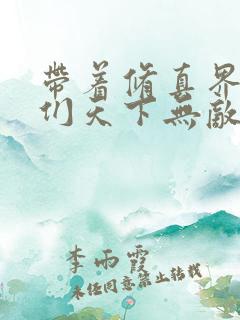 帶着脩真界
们天下無敵
李雨霞
未任同意禁止转载